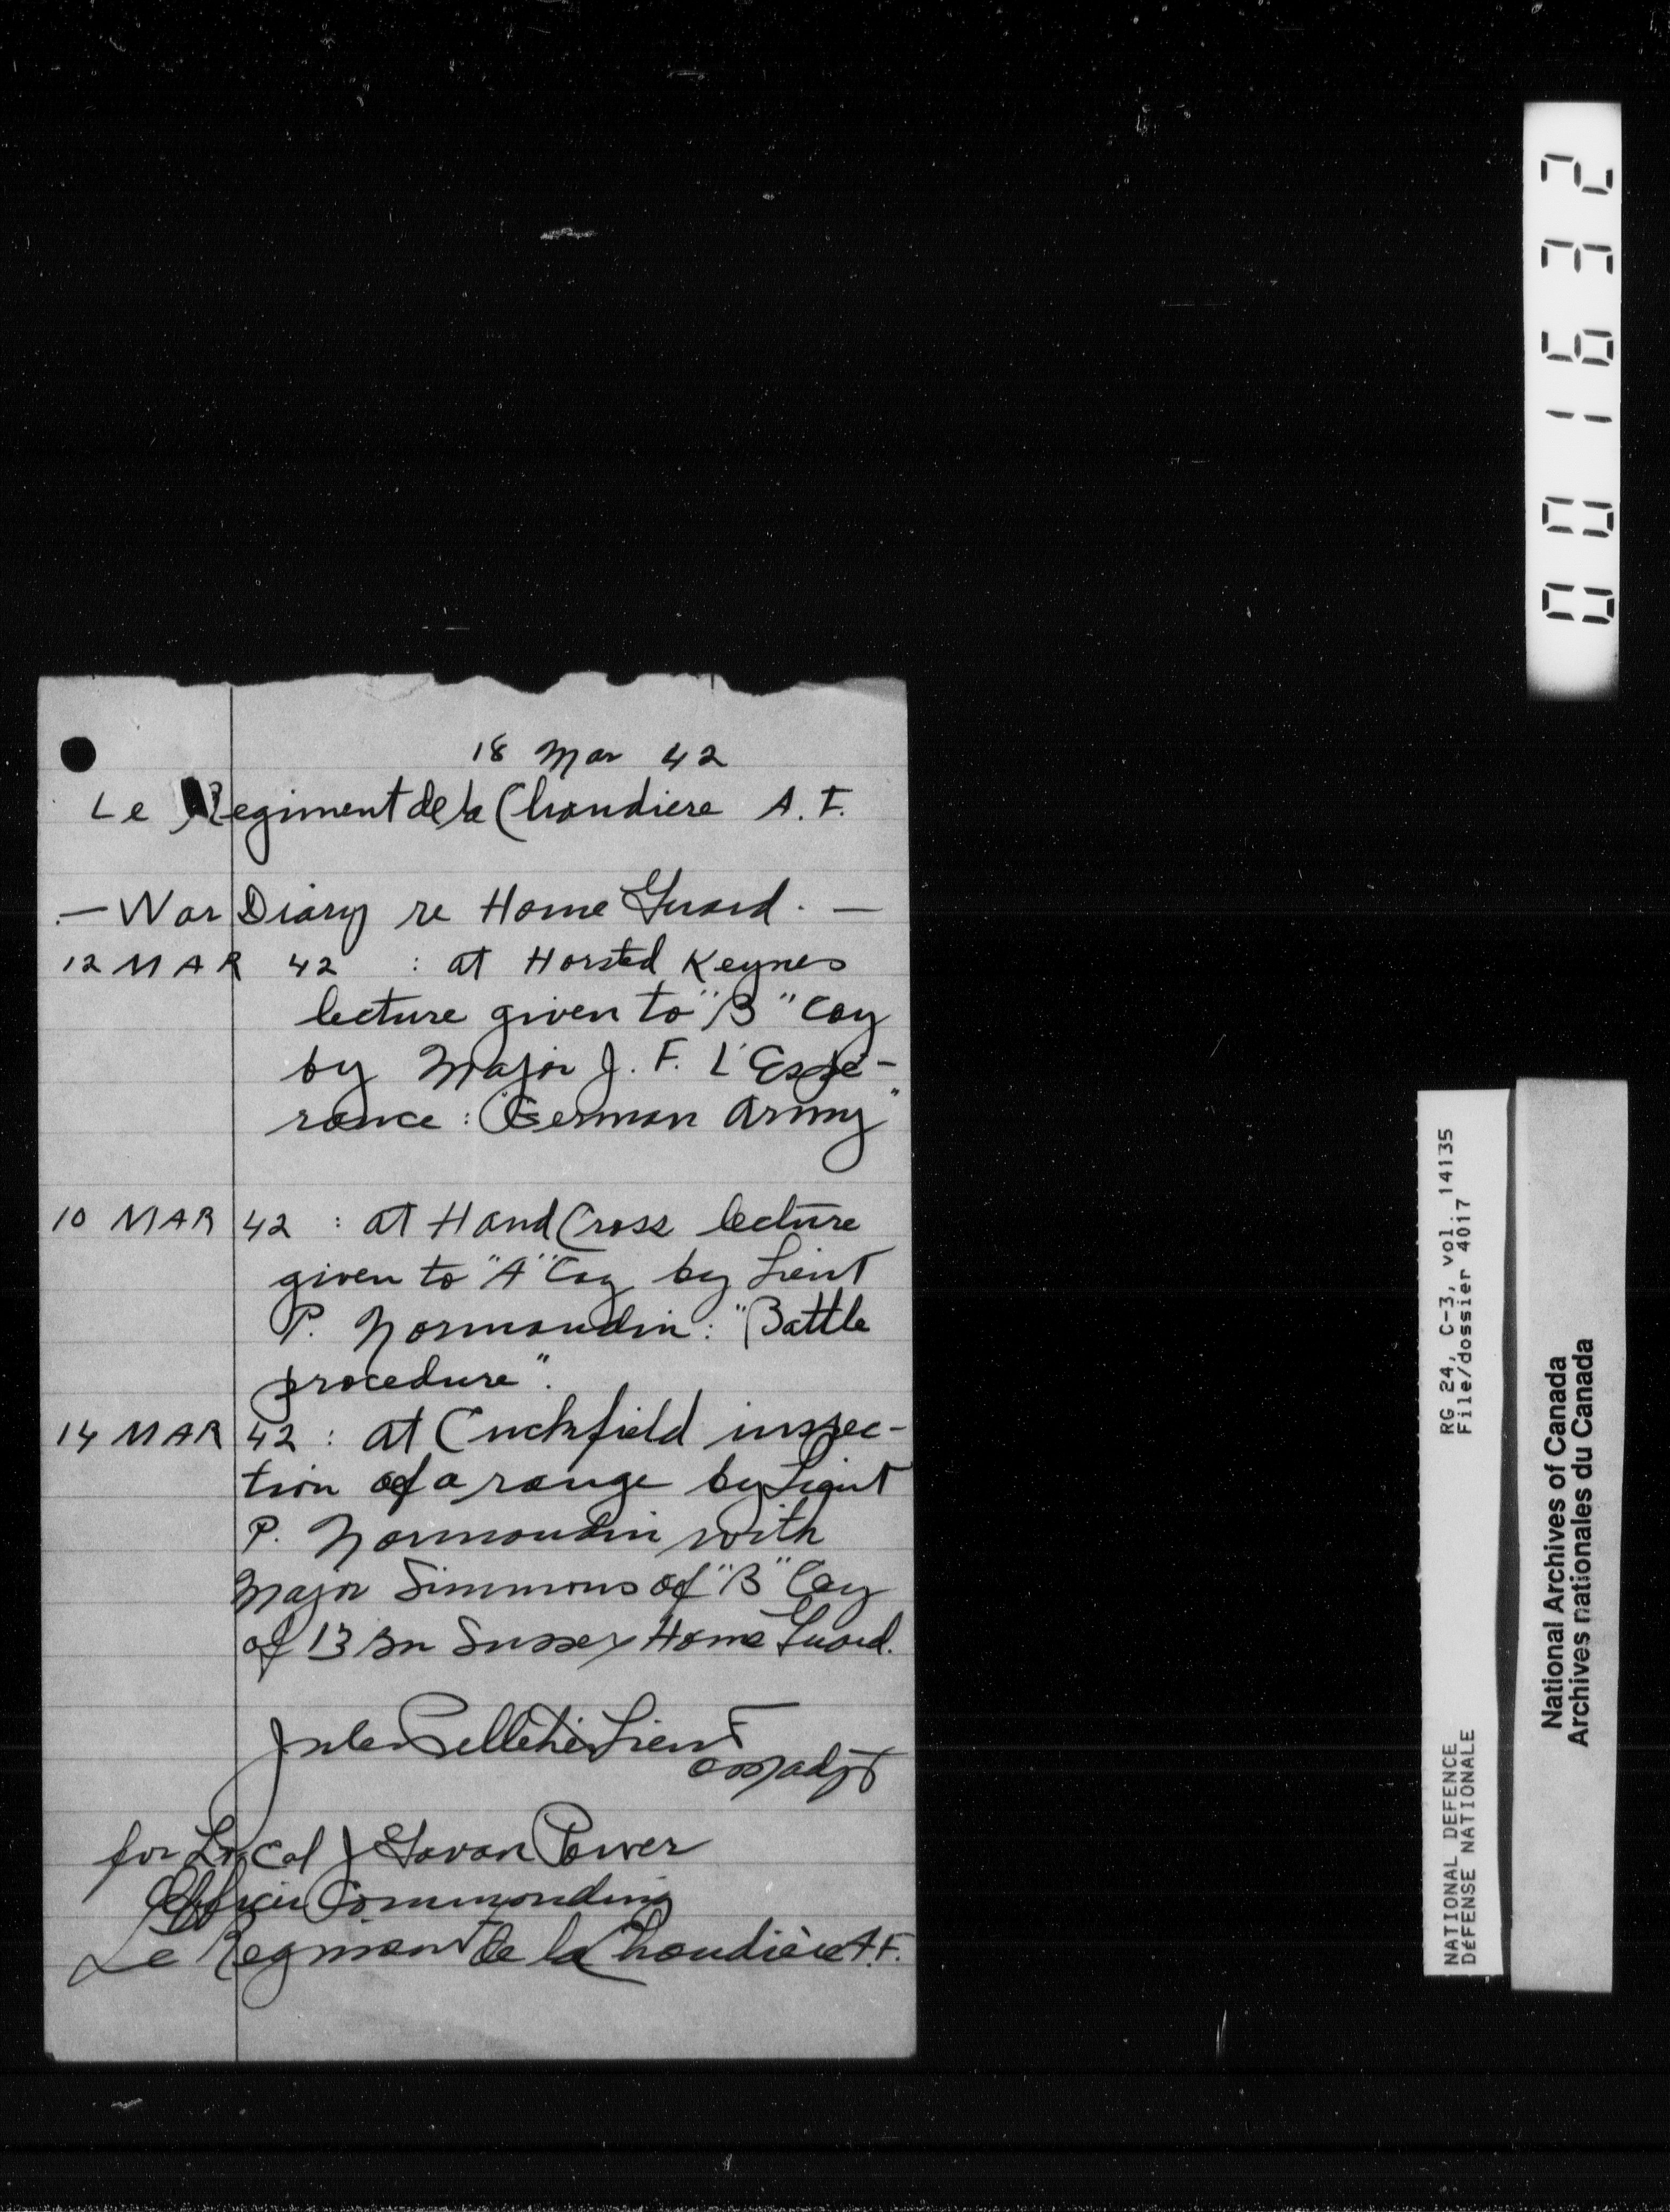 18 Mar 42
Le Regiment de la Chaudiere A. F.
— War Diary re Home Guard. —
12 MAR 42 : at Horsted Keynes
lecture given to "B" Coy
by Major J. F. L'Espé-
rance : "German Army"
10 MAR 42 : at HandCross lecture
given to "A" Coy by Lieut
P. Normandin : "Battle
procedure".
14 MAR 42 : at Cuckfield inspec-
tion of a range by Lieut
P. Normandin with
Major Simmons of "B" Coy
of 13 Bn Sussex Home Guard.
Jules Pelletier Lieut
a/adjt
for Lt Col J Gavan Power
Officer Commanding
Le Regiment de la Chaudière A.F.
001632
RG 24, C-3, vol. 14135
File/dossier 4017
NATIONAL DEFENCE
DÉFENSE NATIONALE
National Archives of Canada
Archives nationales du Canada